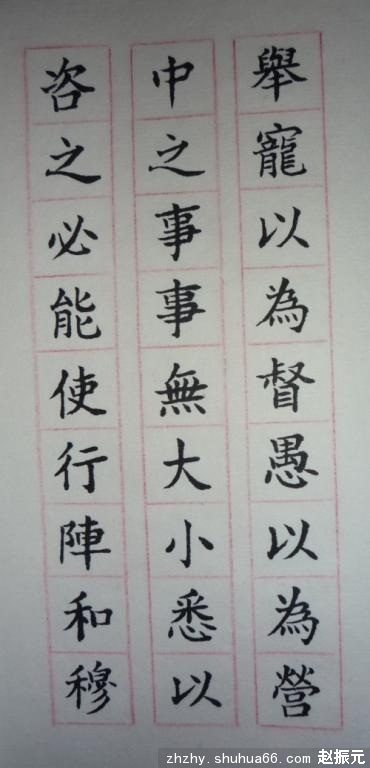 舉寵以為督愚以為營
中之事事無大小悉以
咨之必能使行陣和穆
zhzhy.shuhua66.com 赵振元